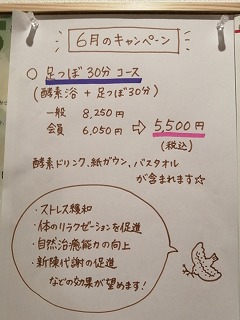 6月のキャンペーン
○ 足つぼ30分コース
(酵素浴 + 足つぼ30分)
一般 8,250円
会員 6,050円 ⇨ 5,500円
(税込)
酵素ドリンク、紙ガウン、バスタオル
が含まれます☆
・ストレス緩和
・体のリラクゼーションを促進
・自然治癒能力の向上
・新陳代謝の促進
などの効果が望めます!